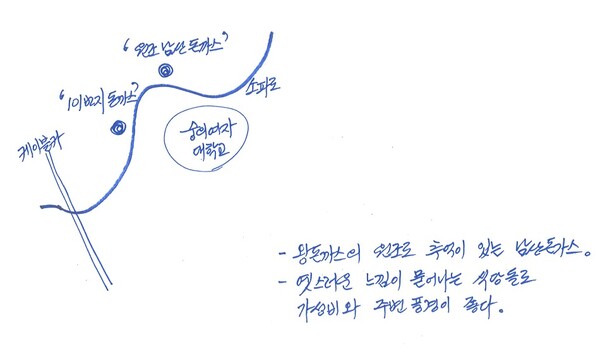 '원조 남산 돈까스'
'101번지 돈까스'
소파로
숭의여자
대학교
케이블카
- 왕돈까스의 원조로 추억이 있는 남산돈가스.
- 옛스러운 느낌이 묻어나는 식당들로
가성비와 주변 풍경이 좋다.